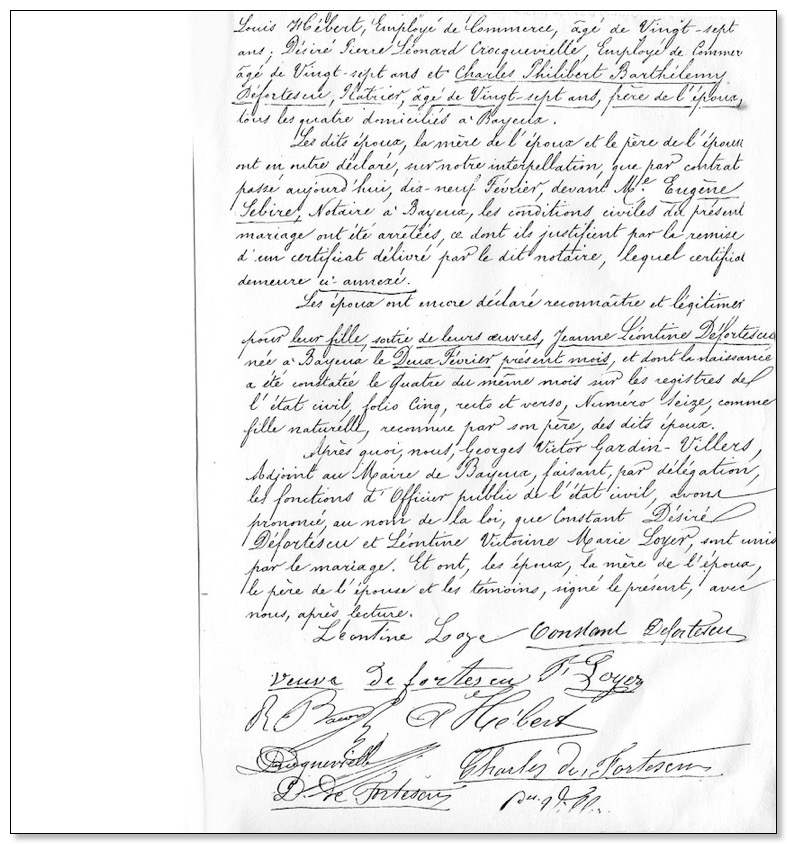 Louis Hébert, Employé de Commerce, âgé de Vingt-sept
ans; Désiré Pierre Léonard Crocquevielle, Employé de Commer
âgé de Vingt-sept ans et Charles Philibert Barthélemy
Défortescu, Platrier, âgé de Vingt-sept ans, frère de l'époux,
tous les quatre domiciliés à Bayeux.
Les dits époux, la mère de l'époux et le père de l'épouse
ont en outre déclaré, sur notre interpellation, que par contrat
passé aujourd'hui, dix-neuf Février, devant Me. Eugène
Sebire, Notaire à Bayeux, les conditions civiles du présent
mariage ont été arrêtées, ce dont ils justifient par la remise
d'un certificat délivré par le dit notaire, lequel certificat
demeure ci-annexé.
Les époux ont encore déclaré reconnaître et légitimer
pour leur fille, sortie de leurs œuvres, Jeanne Léontine Défortescu
née à Bayeux le Deux Février présent mois, et dont la naissance
a été constatée le Quatre du même mois sur les registres de
l'état civil, folio Cinq, recto et verso, Numéro Seize, comme
fille naturelle, reconnue par son père, des dits époux.
Après quoi, nous, Georges Victor Gardin-Villers,
Adjoint au Maire de Bayeux, faisant, par délégation,
les fonctions d'Officier public de l'état civil, avons
prononcé, au nom de la loi, que Constant Désiré
Défortescu et Léontine Victorine Marie Loyer, sont unis
par le mariage. Et ont, les époux, la mère de l'époux,
le père de l'épouse et les témoins, signé le présent, avec
nous, après lecture.
Léontine Loye Constant Defortescu
Veuve de fortescu F. Loyer
R Bacon A Hébert
Crocquevielle Charles de Fortescu
D. de Fortescu